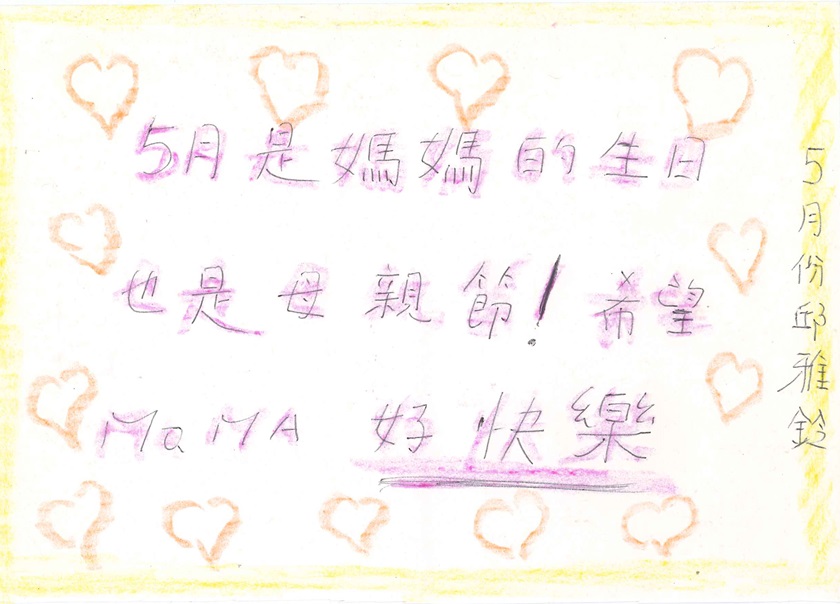 5月是媽媽的生日
也是母親節!希望
MaMA 好快樂
5月份邱雅鈴